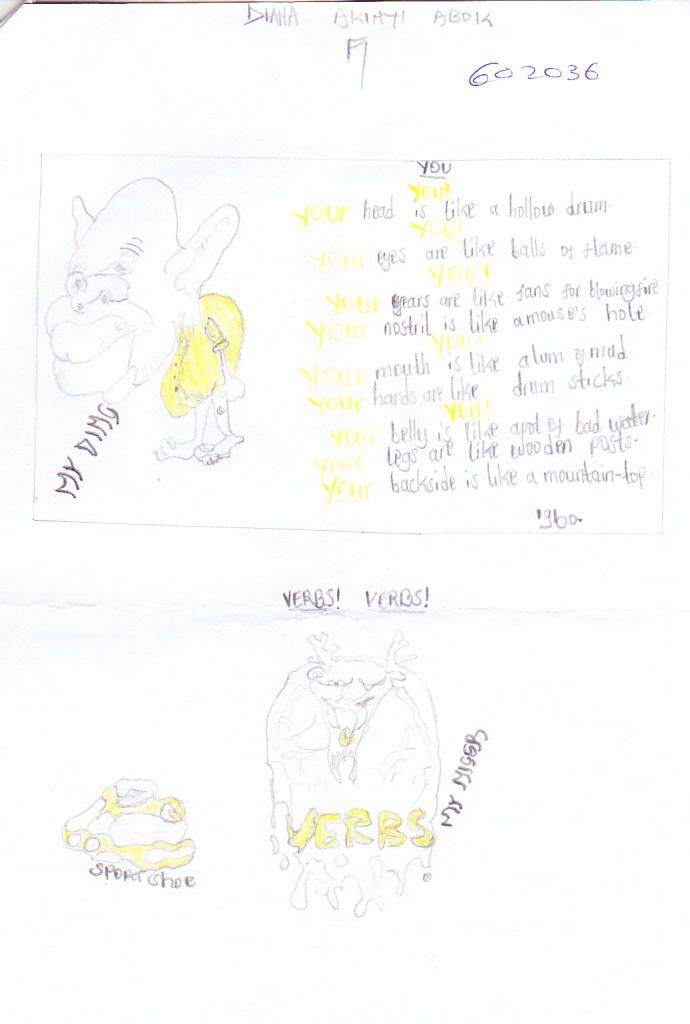 DIANA AKINYI ABOK
602036
YOU
YOU!
YOUR head is like a hollow drum.
YOU!
Your eyes are like balls of flame.
YOU!
Your ears are like fans for blowing fire
YOUR nostril is like a mouse's hole.
YOU!
YOUR mouth is like a lum of mud.
YOUR hands are like drum sticks.
YOU!
Your belly is like a pot of bad water.
Your legs are like wooden posts.
YOUR backside is like a mountain-top.
VERBS! VERBS!
VERBS
SPORT SHOE